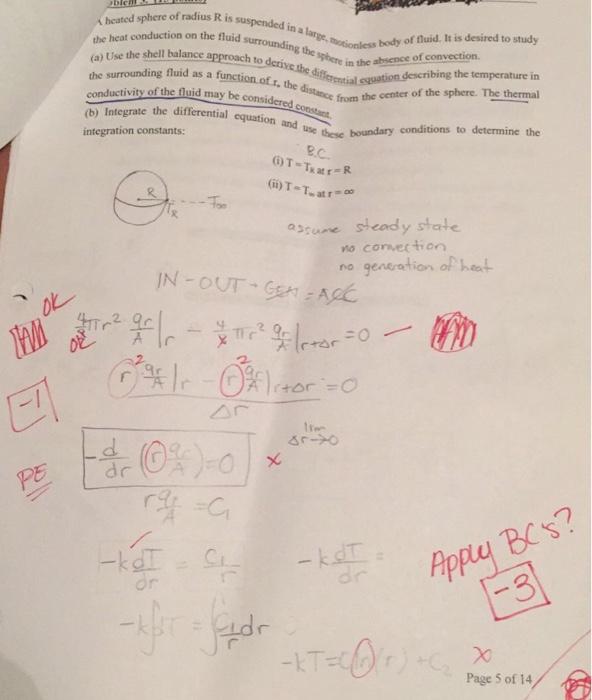 A heated sphere of radius R is suspended in a large, motionless body of fluid. It is desired to study
the heat conduction on the fluid surrounding the sphere in the absence of convection.
(a) Use the shell balance approach to derive the differential equation describing the temperature in
the surrounding fluid as a function of r, the distance from the center of the sphere. The thermal
conductivity of the fluid may be considered constant.
(b) Integrate the differential equation and use these boundary conditions to determine the
integration constants:
B.C.
(i) T = T_R at r = R
(ii) T = T_∞ at r = ∞
R
T_R --- T_∞
assume steady state
no convection
no generation of heat
IN - OUT + GEN = ACC
OK
4πr² qr/A |r - 4πr² qr/A |r+Δr = 0
OK
r² qr/A |r - r² qr/A |r+Δr = 0
Δr
-1
lim
Δr→0
-d/dr (r qr/A) = 0 x
PE
r qr/A = C₁
-k dT/dr = C₁/r
-k dT/dr =
Apply BC's?
-3
-k∫dT = ∫C₁/r dr
-kT = C₁ ln(r) + C₂ x
Page 5 of 14